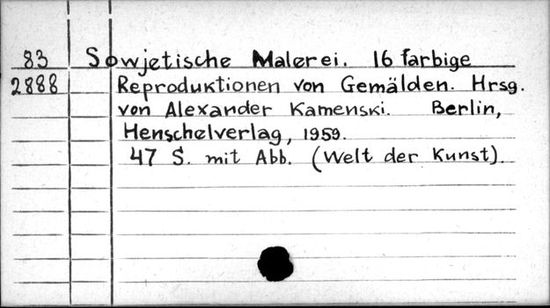 83 Sowjetische Malerei. 16 farbige
2888 Reproduktionen von Gemälden. Hrsg.
von Alexander Kamenski. Berlin,
Henschelverlag, 1959.
47 S. mit Abb. (Welt der Kunst).